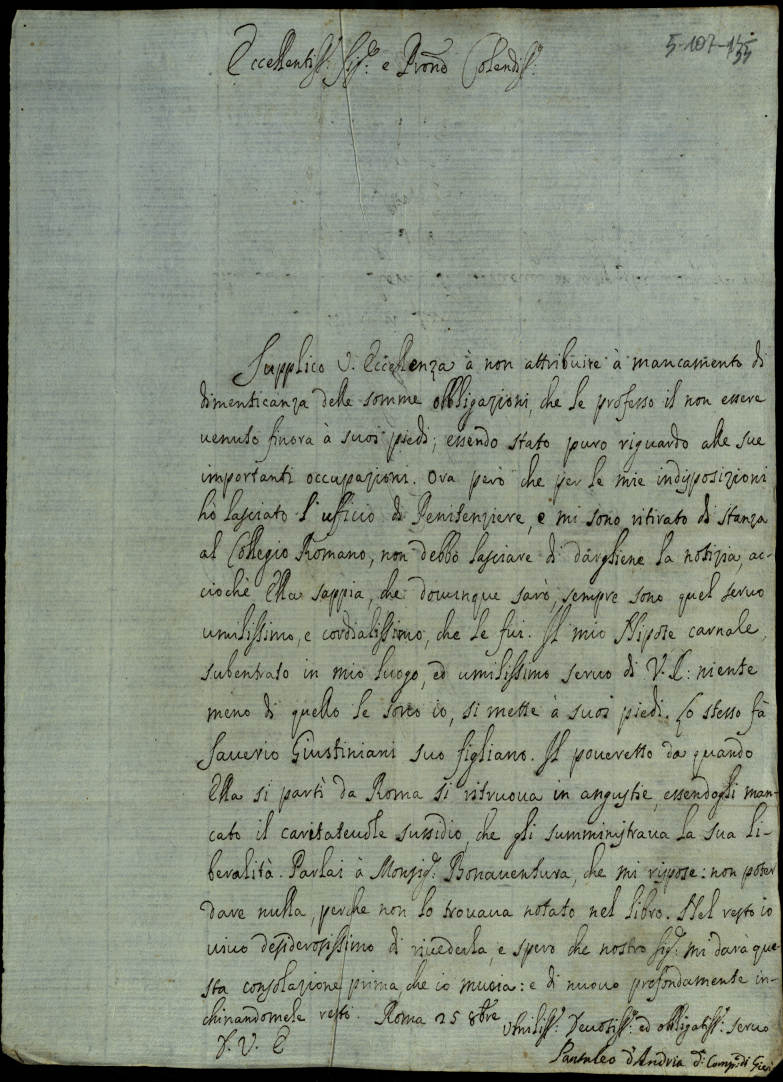 5-107-155
Eccellentiss: Sig:re e Pron̄o Colendiss:
Supplico V. Eccellenza à non attribuire à mancamento di
dimenticanza delle somme obbligazioni, che le professo il non essere
venuto finora à suoi piedi; essendo stato puro riguardo alle sue
importanti occupazioni. Ora però che per le mie indisposizioni
hò lasciato l'ufficio di Penitenziere, e mi sono ritirato di stanza
al Collegio Romano, non debbo lasciare di dargliene la notizia, ac-
ciochè Ella sappia, che dovunque sarò, sempre sono quel servo
umilissimo, e cordialissimo, che le fui. Il mio Nipote carnale,
subentrato in mio luogo, ed umilissimo servo di V. E: niente
meno di quello le sono io, si mette à suoi piedi. Lo stesso fà
Saverio Giustiniani suo figliano. Il poveretto da quando
Ella si partì da Roma si ritruova in angustie, essendogli man-
cato il caritatevole sussidio, che gli sumministrava la sua li-
beralità. Parlai à Monsig:r Bonaventura, che mi rispose: non poter
dare nulla, perche non lo trovava notato nel libro. Nel resto io
vivo desiderosissimo di rivederla e spero che nostro Sig:re mi darà que-
sta consolazione prima che io muoia: e di nuovo profondamente in-
chinandomele resto. Roma 25 8bre
D. V. E
Umiliss: Devotiss: ed obbligatiss: servo
Pantaleo d'Andria d: Comp: di Giesù